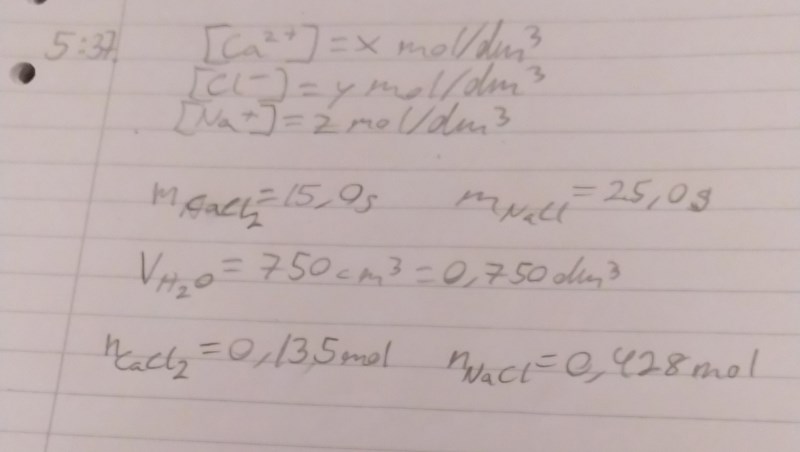 5:37. [Ca²⁺] = x mol/dm³
[Cl⁻] = y mol/dm³
[Na⁺] = z mol/dm³
m_CaCl₂ = 15,0g m_NaCl = 25,0g
V_H₂O = 750 cm³ = 0,750 dm³
n_CaCl₂ = 0,135 mol n_NaCl = 0,428 mol